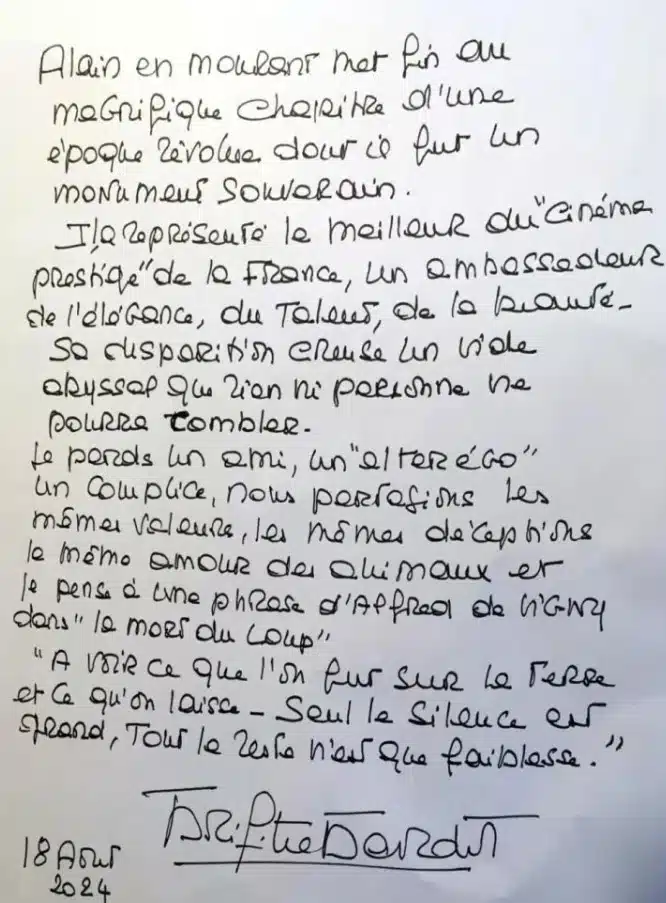 Alain en mourant met fin au
magnifique chapitre d'une
époque révolue dont il fut un
monument souverain.
Il a représenté le meilleur du "cinéma
prestige" de la France, un ambassadeur
de l'élégance, du talent, de la beauté -
Sa disparition creuse un vide
abyssal que rien ni personne ne
pourra combler.
Je perds un ami, un "alter égo"
un complice, nous partagions les
mêmes valeurs, les mêmes déceptions
le même amour des animaux et
je pense à une phrase d'Alfred de Vigny
dans "la mort du loup"
"A voir ce que l'on fut sur la Terre
et ce qu'on laisse - Seul le silence est
grand, Tout le reste n'est que faiblesse."
Brigitte Bardot
18 Août
2024